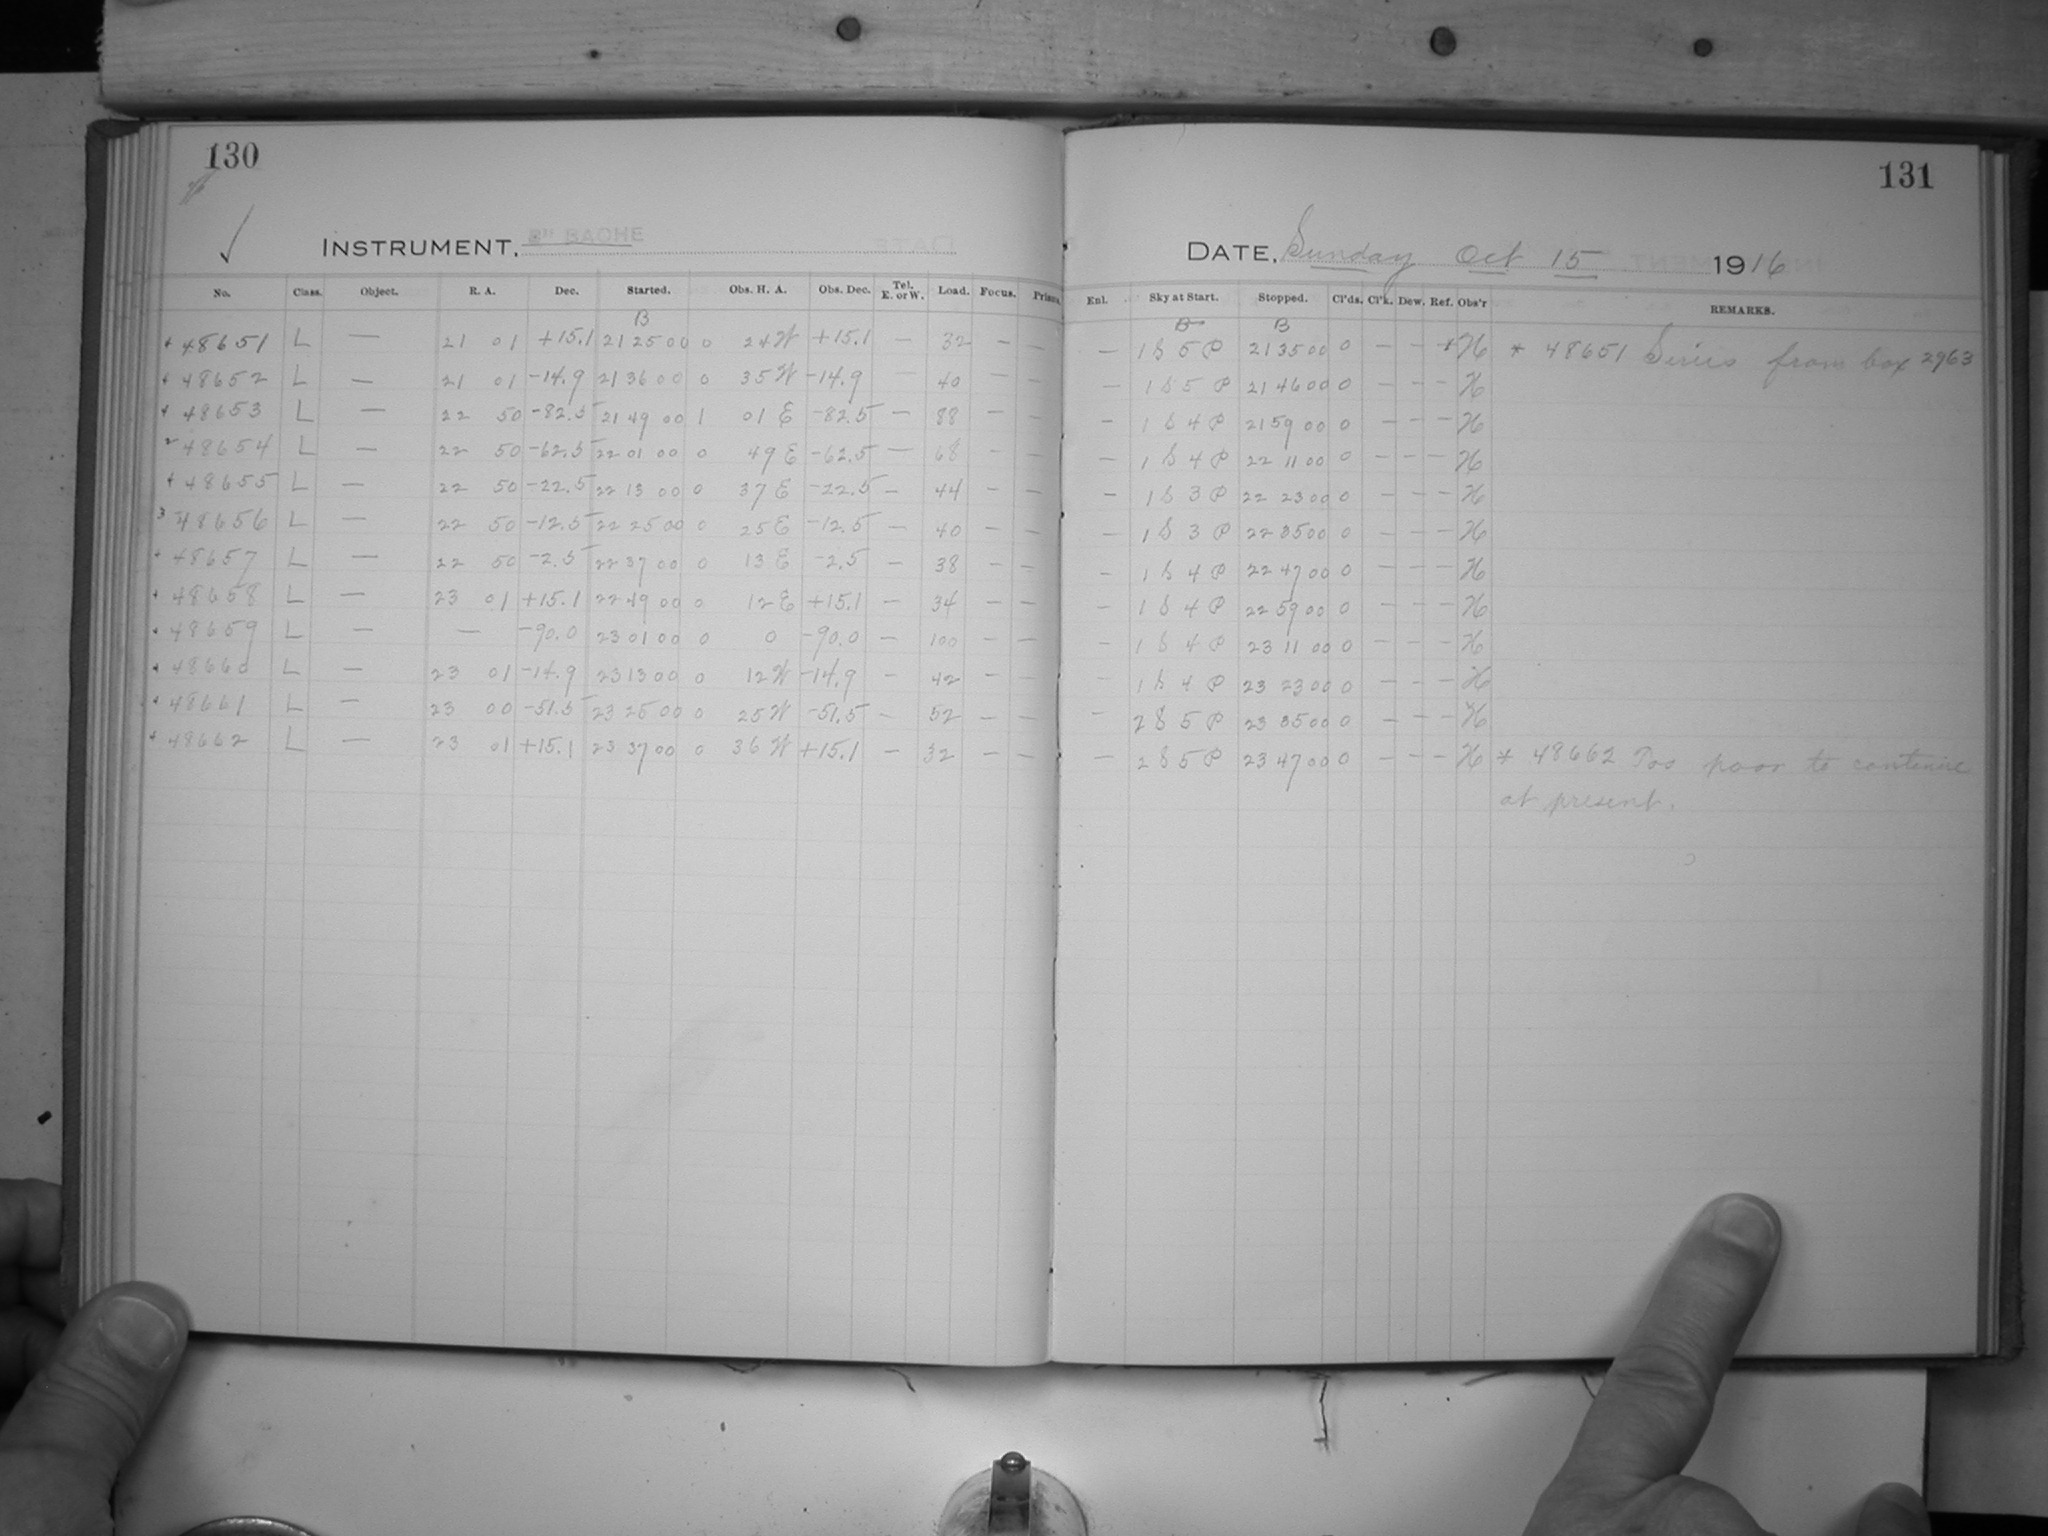 130
INSTRUMENT, 8" BACHE
No. Class. Object. R. A. Dec. Started. Obs. H. A. Obs. Dec. Tel. E. or W. Load. Focus. Prism.
B
48651 L — 21 01 +15.1 21 25 00 0 24 W +15.1 — 32 — —
48652 L — 21 01 -14.9 21 36 00 0 35 W -14.9 — 40 — —
48653 L — 22 50 -82.5 21 49 00 1 01 E -82.5 — 88 — —
48654 L — 22 50 -62.5 22 01 00 0 49 E -62.5 — 68 — —
48655 L — 22 50 -22.5 22 13 00 0 37 E -22.5 — 44 — —
48656 L — 22 50 -12.5 22 25 00 0 25 E -12.5 — 40 — —
48657 L — 22 50 -2.5 22 37 00 0 13 E -2.5 — 38 — —
48658 L — 23 01 +15.1 22 49 00 0 12 E +15.1 — 34 — —
48659 L — — -90.0 23 01 00 0 0 -90.0 — 100 — —
48660 L — 23 01 -14.9 23 13 00 0 12 W -14.9 — 42 — —
48661 L — 23 00 -51.5 23 25 00 0 25 W -51.5 — 52 — —
48662 L — 23 01 +15.1 23 37 00 0 36 W +15.1 — 32 — —
131
DATE, Sunday Oct 15 1916
Enl. Sky at Start. Stopped. Cl'ds. Cl'k. Dew. Ref. Obs'r REMARKS.
B B
— 1 S 5 P 21 35 00 0 — — * H * 48651 Series from box 2963
— 1 S 5 P 21 46 00 0 — — — H
— 1 S 4 P 21 59 00 0 — — — H
— 1 S 4 P 22 11 00 0 — — — H
— 1 S 3 P 22 23 00 0 — — — H
— 1 S 3 P 22 35 00 0 — — — H
— 1 S 4 P 22 47 00 0 — — — H
— 1 S 4 P 22 59 00 0 — — — H
— 1 S 4 P 23 11 00 0 — — — H
— 1 S 4 P 23 23 00 0 — — — H
— 2 S 5 P 23 35 00 0 — — — H
— 2 S 5 P 23 47 00 0 — — — H * 48662 Too poor to continue
at present.